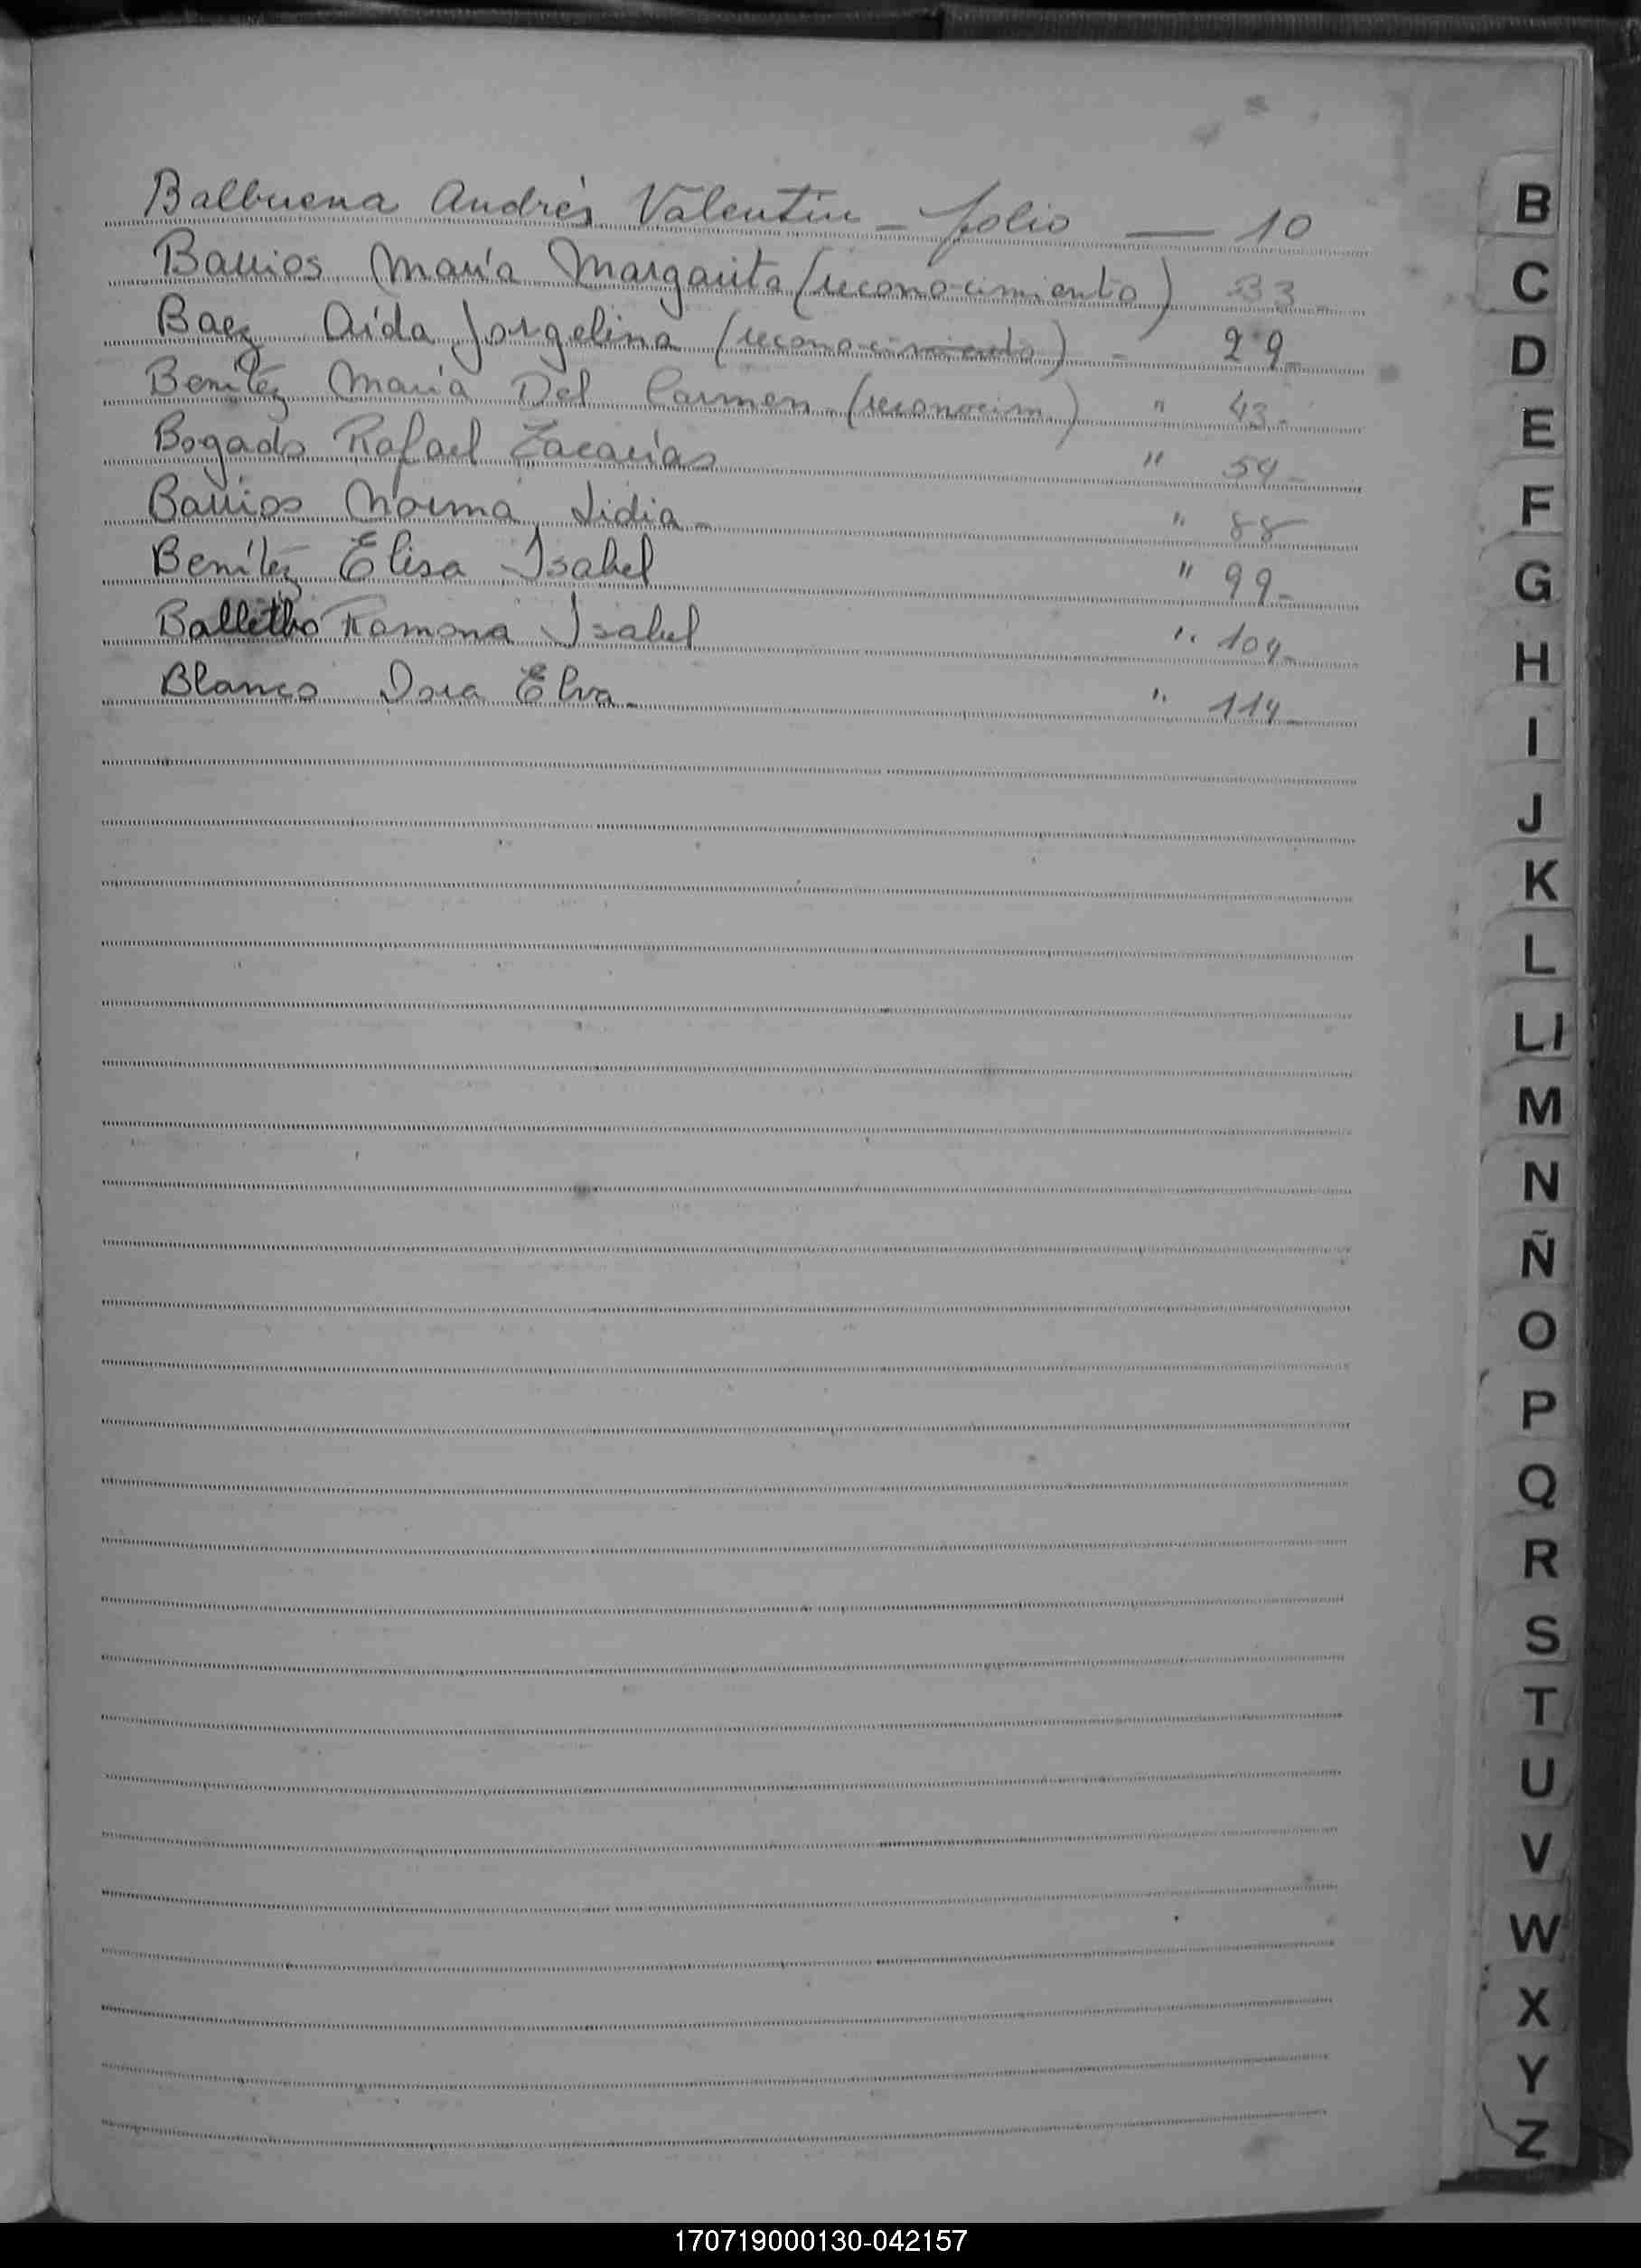 Balbuena Andrés Valentin - folio — 10
Barrios María Margarita (reconocimiento) 33-
Baez Aída Jorgelina (reconocimiento) - 29-
Benítez María Del Carmen (reconocim.) " 43-
Bogado Rafael Zacarías " 54-
Barrios Norma Lidia- " 88-
Benítez Elisa Isabel " 99-
Ramona Isabel " 104-
Blanco Dora Elva- " 114-
B
C
D
E
F
G
H
I
J
K
L
Ll
M
N
Ñ
O
P
Q
R
S
T
U
V
W
X
Y
Z
170719000130-042157